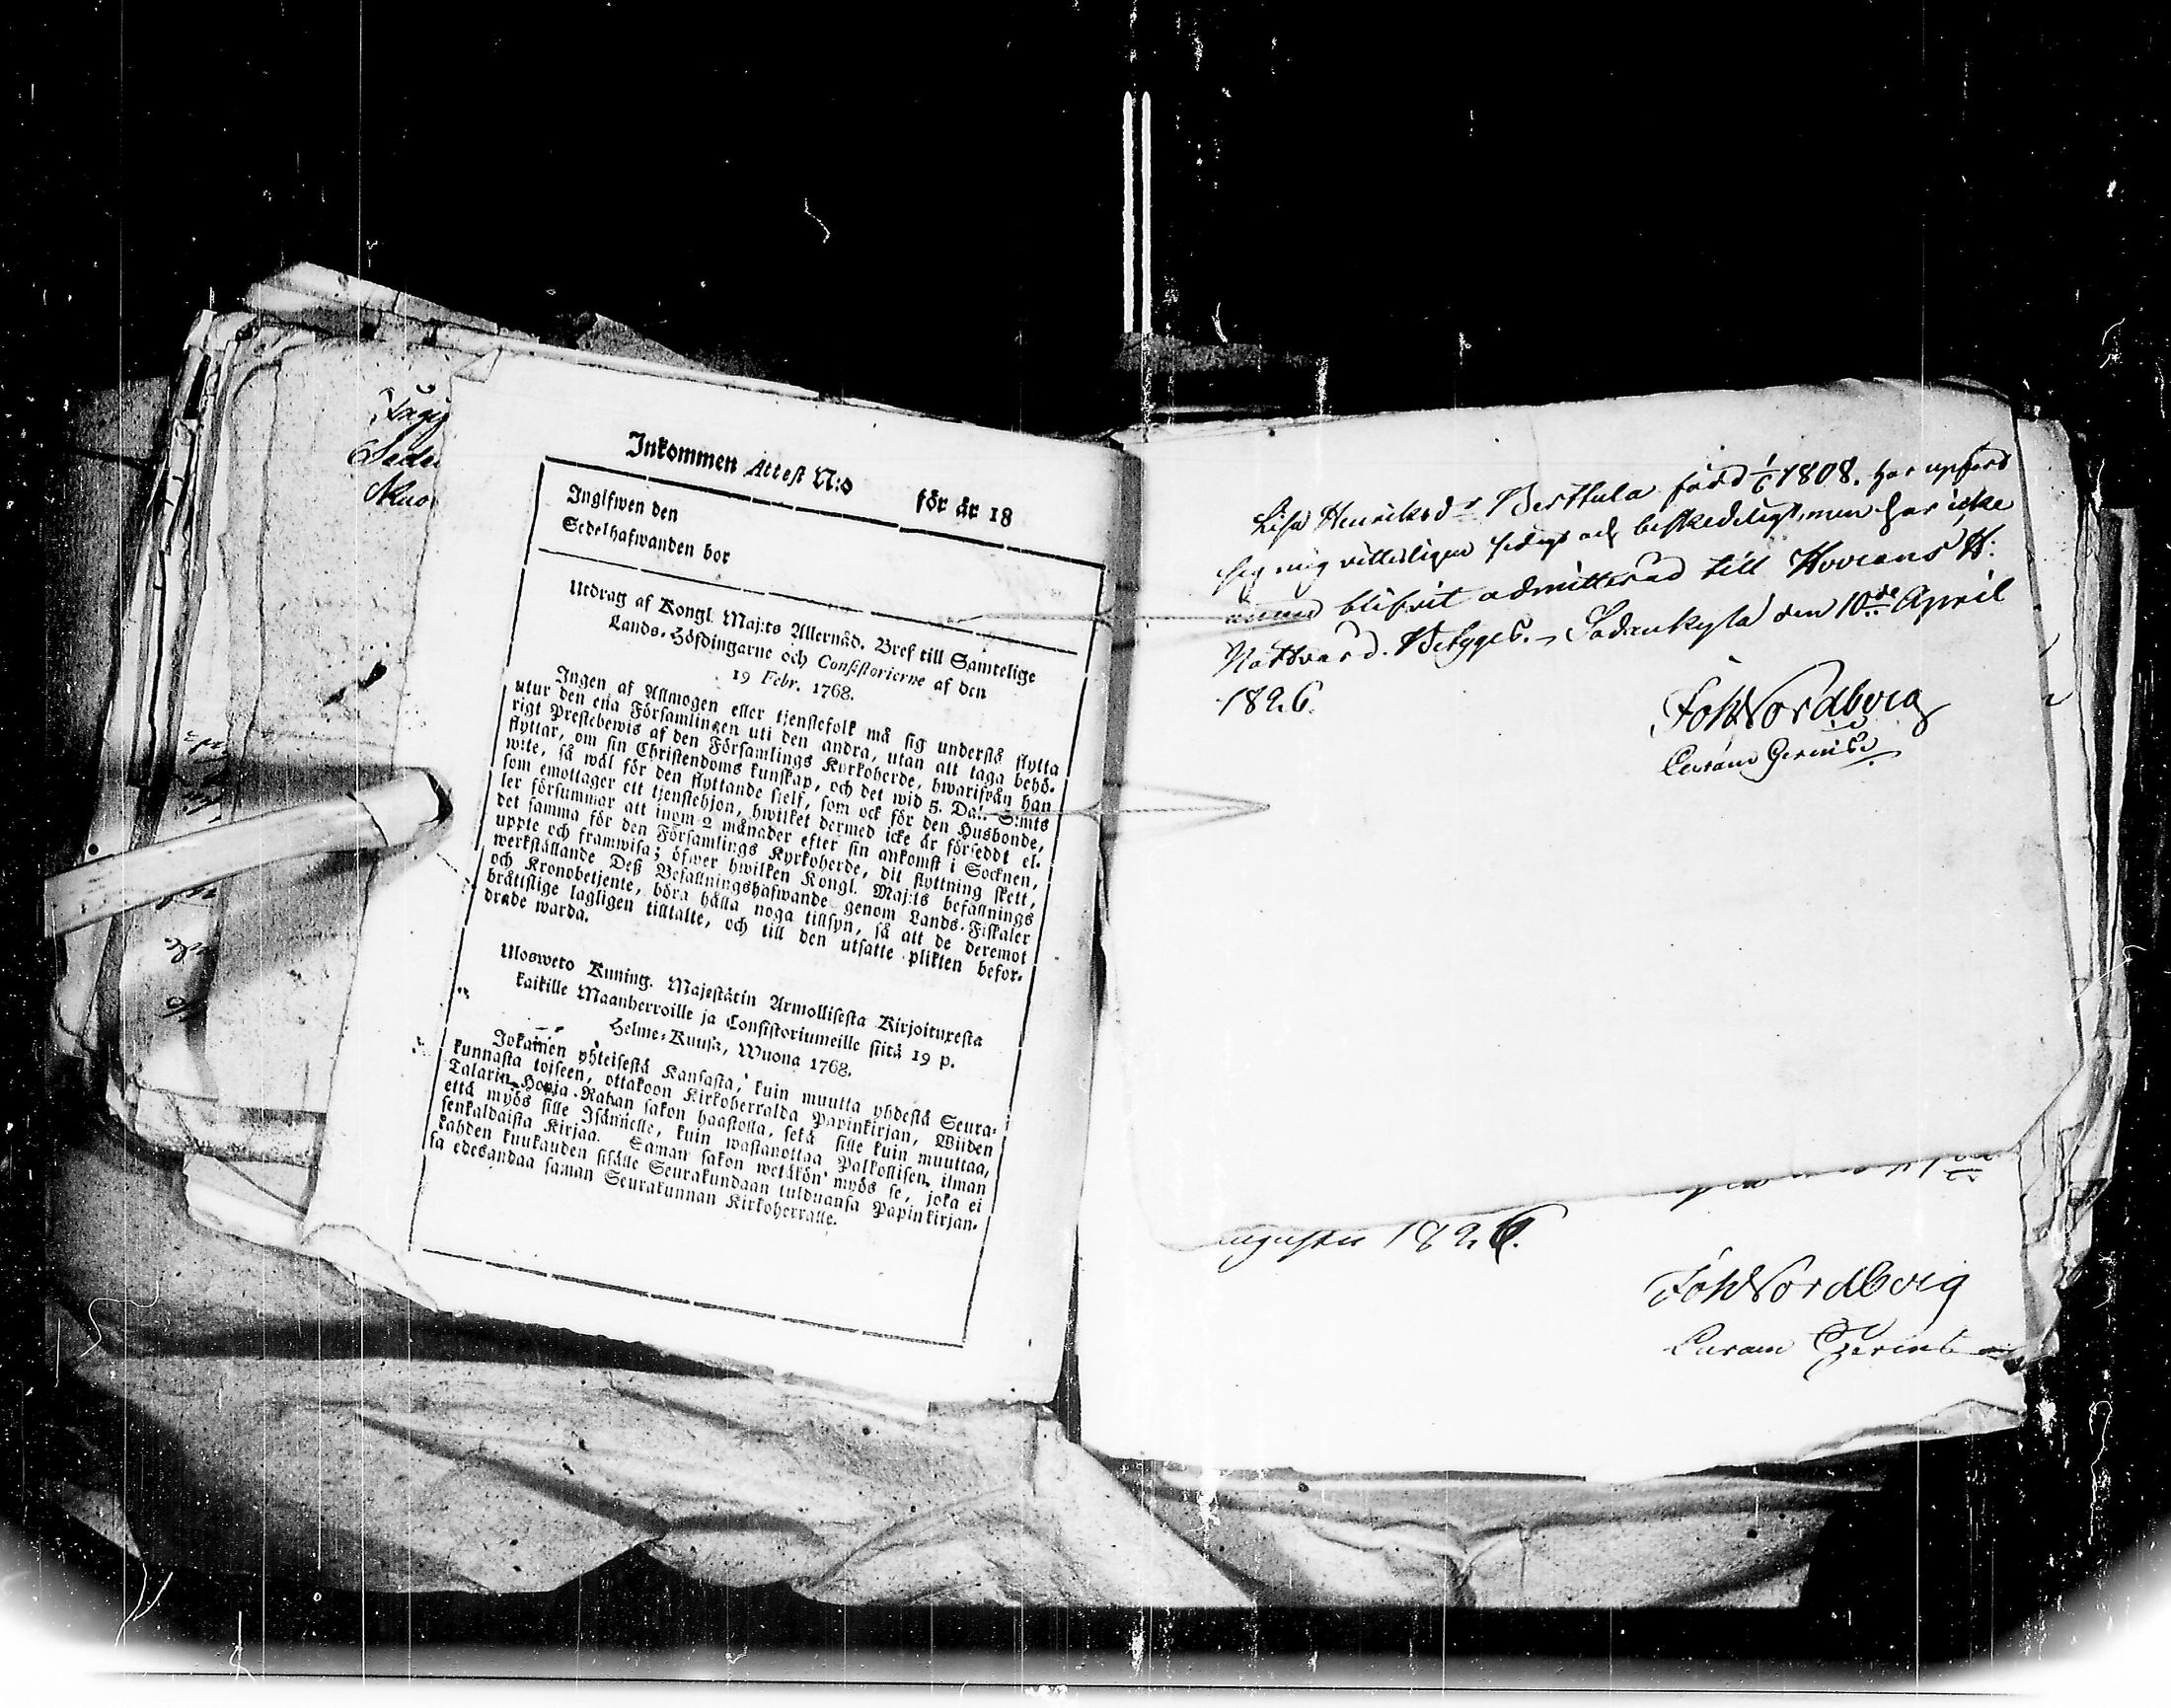 Sede
Inkommen Attest N:o för år 18
Inglfwen den
Sedelhafwanden bor
Utdrag af Kongl. Maj:ts Allernåd. Bref till Samtelige
Lands-Höfdingarne och Consistorierne af den
19 Febr. 1768.
Ingen af Allmogen eller tjenstefolk må sig understå flytta
utur den ena Församlingen uti den andra, utan att taga behö-
rigt Prestebewis af den Församlings Kyrkoherde, hwarifrån han
flyttar, om sin Christendoms kunskap, och det wid 5. Dal. S:mts
wite, så wäl för den flyttande sielf, som ock för den Husbonde,
som emottager ett tjenstehjon, hwilket dermed icke är försedt el-
ler försummar att inom 2 månader efter sin ankomst i Socknen,
det samma för den Församlings Kyrkoherde, dit flyttning skett,
uppte och framwisa; öfwer hwilken Kongl. Maj:ts befallnings
werkställande Deß Befallningshafwande genom Lands-Fiskaler
och Kronobetjente, böra hålla noga tillsyn, så att de deremot
bråttslige lagligen tilltalte, och till den utsatte plikten befor-
drade warda.
Uloswero Kuning. Majestätin Armollisesta Kirjoituxesta
kaikille Maanherroille ja Consistoriumeille siitä 19 p.
Helme-Kuusa, Wuona 1768.
Jokainen yhteisestä Kansasta, kuin muutta yhdestä Seura-
kunnasta toiseen, ottakoon Kirkoherralda Papinkirjan, Wiiden
Talarin Hopia-Rahan sakon haastolla, sekä sille kuin muuttaa,
että myös sille Isännelle, kuin wastanottaa Palkollisen ilman
senkaldaista Kirjaa. Saman sakon wetäkön myös se, joka ei
kahden kuukauden sisälle Seurakundaan tulduansa Papinkirjan-
sa edesandaa saman Seurakunnan Kirkoherralle.
Lisa Henriksdr Perttula född 1/6 1808. har upfördt
sig mig vitterligen sedigt och beskedeligt, men har icke
ännu blifvit admitterad till Hvvrans H:
Nattvard. Betygas. Sodankylä den 10de April
1826.
Joh Nordberg
Augusti 1826.
Joh Nordberg